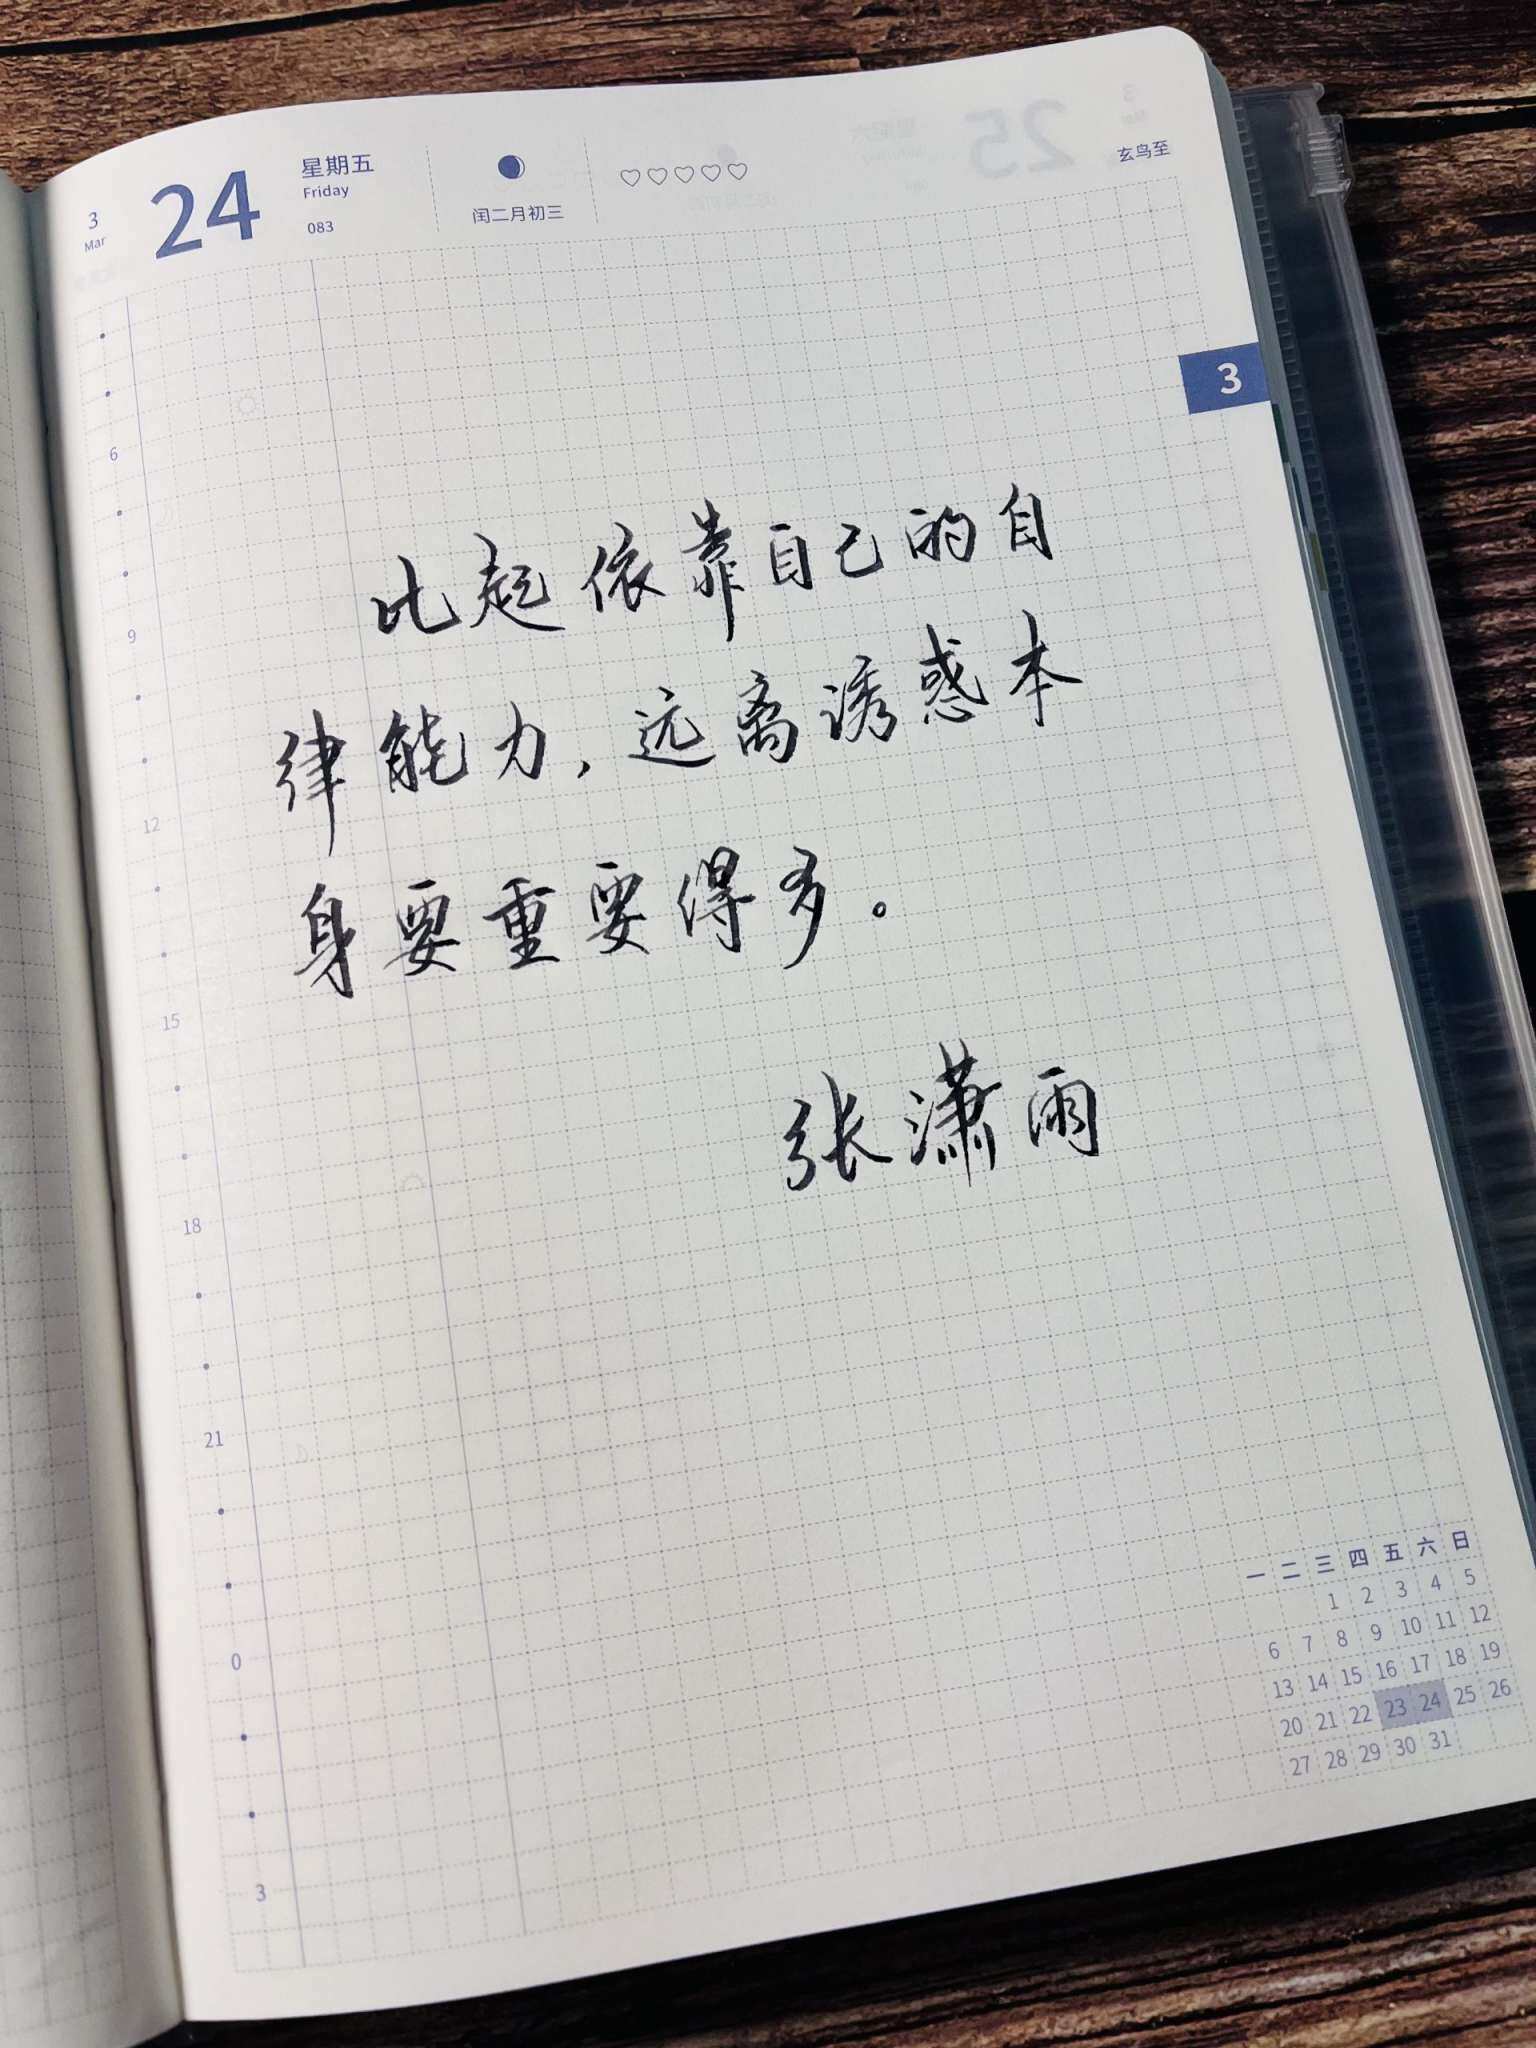 3
Mar
24
星期五
Friday
083
闰二月初三
玄鸟至
3
6
9
12
15
18
21
0
3
比起依靠自己的自
律能力，远离诱惑本
身要重要得多。
张潇雨
一 二 三 四 五 六 日
1 2 3 4 5
6 7 8 9 10 11 12
13 14 15 16 17 18 19
20 21 22 23 24 25 26
27 28 29 30 31